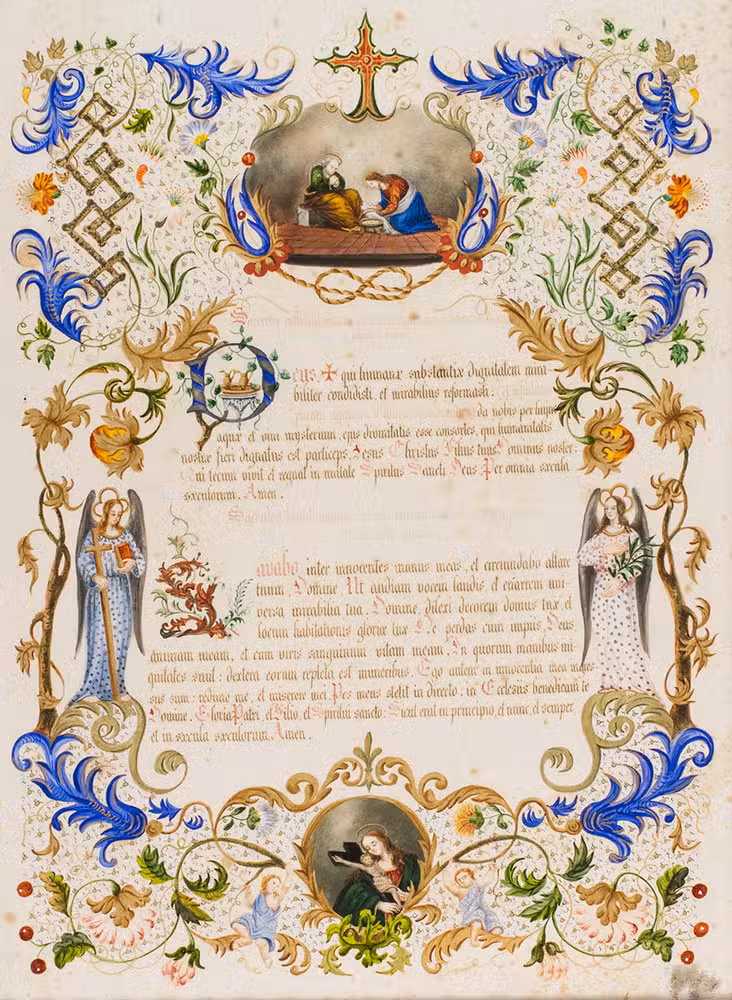 Deus, ✠ qui humanæ substantiæ dignitatem mira-
biliter condidisti, et mirabilius reformasti:
da nobis per hujus
aquæ et vini mysterium, ejus divinitatis esse consortes, qui humanitatis
nostræ fieri dignatus est particeps, Jesus Christus Filius tuus Dominus noster
Qui tecum vivit et regnat in unitate Spiritus Sancti Deus Per omnia sæcula
sæculorum. Amen.
Lavabo inter innocentes manus meas, et circumdabo altare
tuum, Domine, Ut audiam vocem laudis et enarrem uni-
versa mirabilia tua, Domine, dilexi decorem domus tuæ, et
locum habitationis gloriæ tuæ Ne perdas cum impiis, Deus
animam meam, et cum viris sanguinum vitam meam. In quorum manibus ini-
quitates sunt: dextera eorum repleta est muneribus. Ego autem in innocentia mea
sus sum: redime me, et miserere mei Pes meus stetit in directo: in Ecclesiis benedicam te
Domine. Gloria Patri, et Filio, et Spiritui sancto: Sicut erat in principio, et nunc, et semper
et in sæcula sæculorum. Amen.